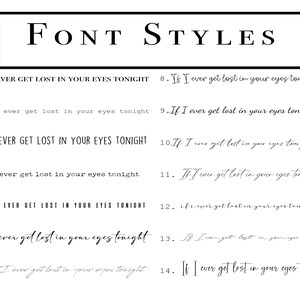 FONT STYLES
EVER GET LOST IN YOUR EYES TONIGHT
ever get lost in your eyes tonight
EVER GET LOST IN YOUR EYES TONIGHT
ever get lost in your eyes tonight
EVER GET LOST IN YOUR EYES TONIGHT
ever get lost in your eyes tonight
I ever get lost in your eyes tonight
8. If I ever get lost in your eyes
9. If I ever get lost in your eyes
10. If I ever get lost in your eyes
11. If I ever get lost in your eyes
12. if i ever get lost in your eyes
13. If I ever get lost in your eyes
14. If I ever get lost in your eyes